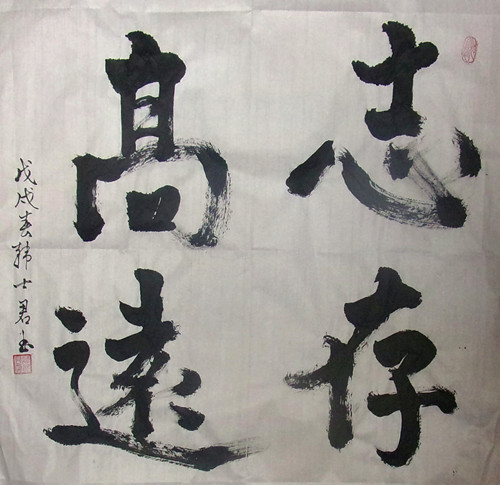 志存
高遠
戊戌春韩士君书